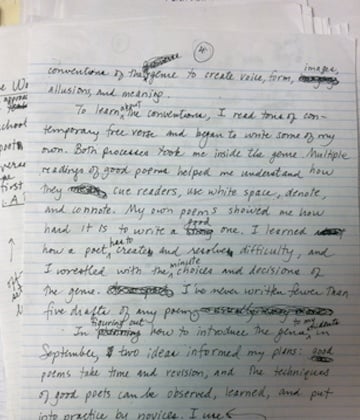 4
conventions of the genre to create voice, form, images,
allusions, and meaning.
To learn about the conventions, I read tons of con-
temporary free verse and began to write some of my
own. Both processes took me inside the genre. Multiple
readings of good poems helped me understand how
they cue readers, use white space, denote,
and connote. My own poems showed me how
hard it is to write a good one. I learned
how a poet has to create and resolve difficulty, and
I wrestled with the minute choices and decisions of
the genre. I've never written fewer than
five drafts of any poem
In figuring out how to introduce the genre to my students in
September, two ideas informed my plans: good
poems take time and revision, and the techniques
of good poets can be observed, learned, and put
into practice by novices. I use